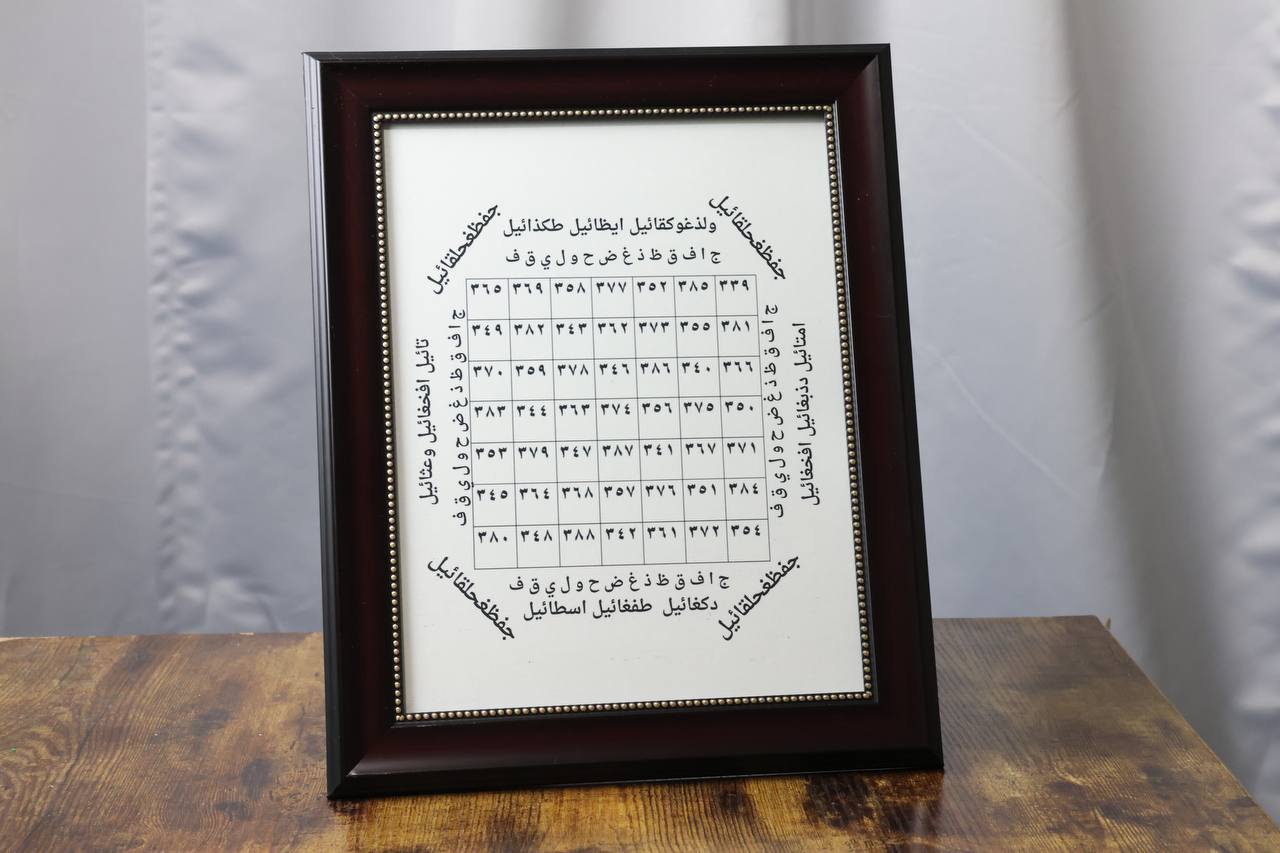 جفظغحلقائيل
ولذغوكقائيل ايظائيل طكذائيل
جفظغحلقائيل
ج ا ف ق ظ ذ غ ض ح و ل ي ق ف
٣٣٩ ٣٨٥ ٣٥٢ ٣٧٧ ٣٥٨ ٣٦٩ ٣٦٥
٣٨١ ٣٥٥ ٣٧٣ ٣٦٢ ٣٤٣ ٣٨٢ ٣٤٩
٣٦٦ ٣٤٠ ٣٨٦ ٣٤٦ ٣٧٨ ٣٥٩ ٣٧٠
٣٥٠ ٣٧٥ ٣٥٦ ٣٧٤ ٣٦٣ ٣٤٤ ٣٨٣
٣٧١ ٣٦٧ ٣٤١ ٣٨٧ ٣٤٧ ٣٧٩ ٣٥٣
٣٨٤ ٣٥١ ٣٧٦ ٣٥٧ ٣٦٨ ٣٦٤ ٣٤٥
٣٥٤ ٣٧٢ ٣٦١ ٣٤٢ ٣٨٨ ٣٤٨ ٣٨٠
ج ا ف ق ظ ذ غ ض ح و ل ي ق ف
امتائيل دذبغائيل افخغائيل
ج ا ف ق ظ ذ غ ض ح و ل ي ق ف
تائيل افخغائيل وعثائيل
ج ا ف ق ظ ذ غ ض ح و ل ي ق ف
دكغائيل طفغائيل اسطائيل
جفظغحلقائيل
جفظغحلقائيل